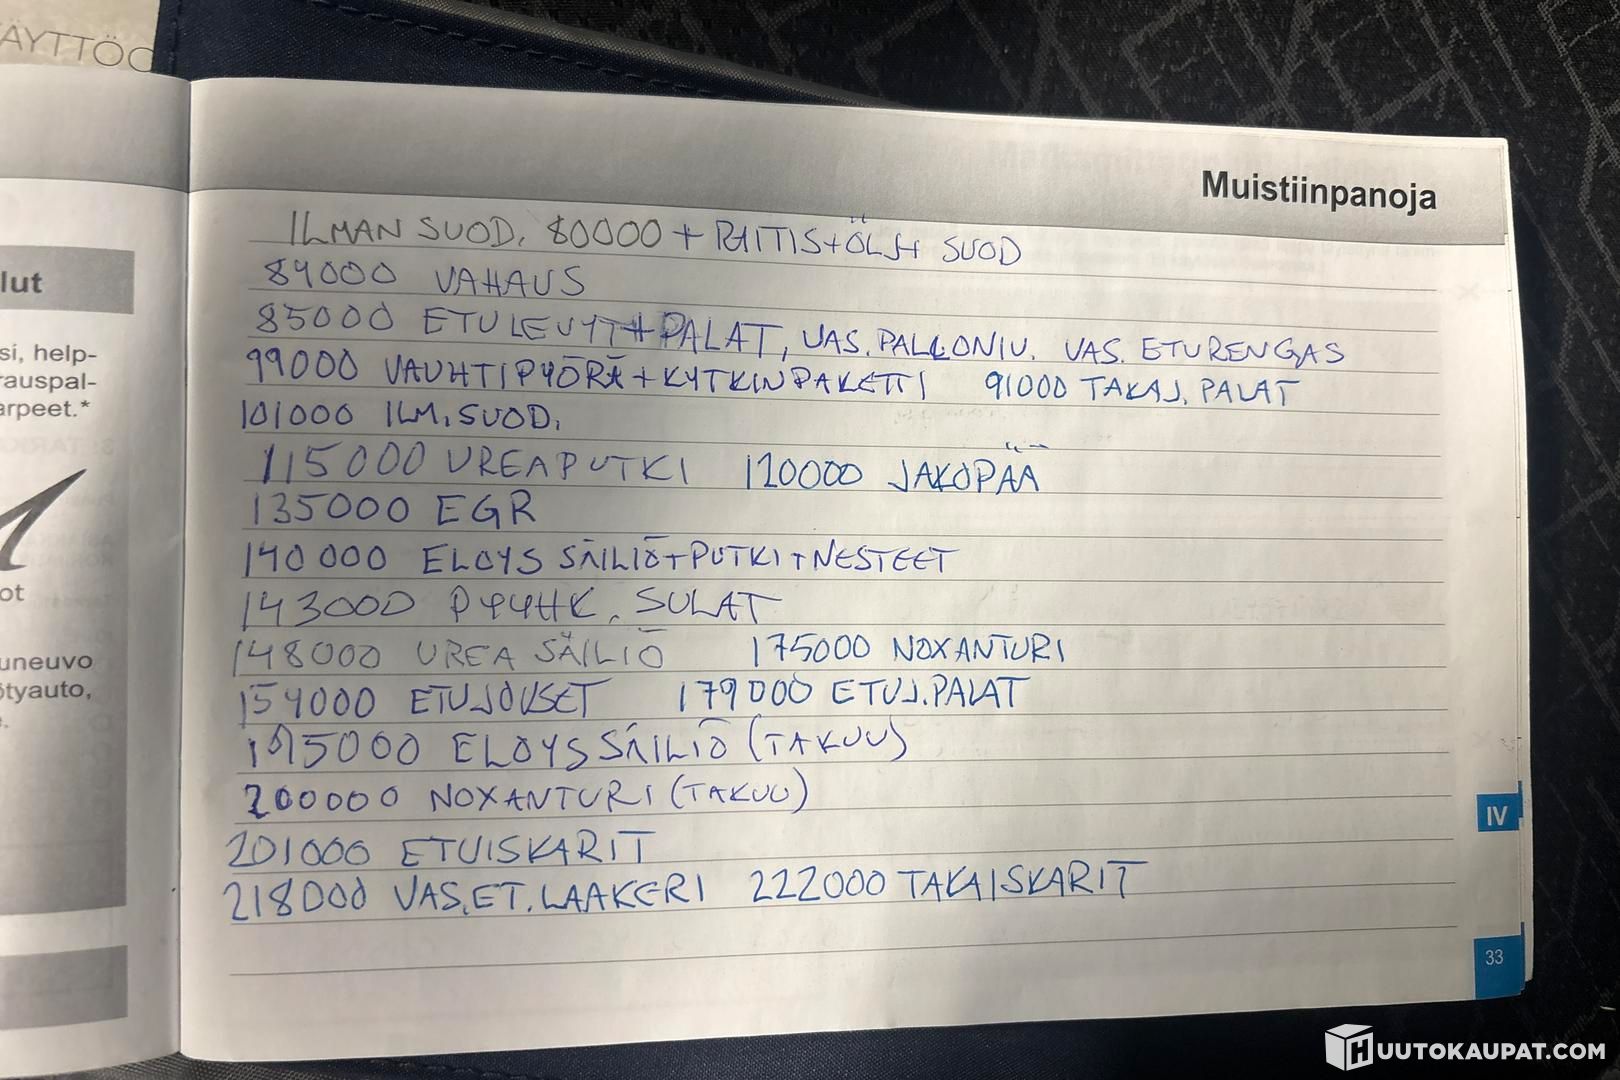 ÄYTTÖO
lut
si, help-
rauspal-
arpeet.*
ot
uneuvo
ötyauto,
Muistiinpanoja
ILMAN SUOD. 80000 + RAITIS+ÖLJ+ SUOD
84000 VAHAUS
85000 ETULEVYT+PALAT, VAS. PALLONIV. VAS. ETURENGAS
99000 VAUHTIPYÖRÄ+KYTKINPAKETTI 91000 TAKAJ. PALAT
101000 ILM.SUOD.
115000 UREAPUTKI 120000 JAKOPÄÄ
135000 EGR
140000 ELOYS SÄILIÖ+PUTKI+NESTEET
143000 PYYHK. SULAT
148000 UREA SÄILIÖ 175000 NOXANTURI
154000 ETUJOUSET 179000 ETUJ.PALAT
195000 ELOYS SÄILIÖ (TAKUU)
200000 NOXANTURI (TAKUU)
201000 ETUISKARIT
218000 VAS.ET.LAAKERI 222000 TAKAISKARIT
IV
33
HUUTOKAUPAT.COM